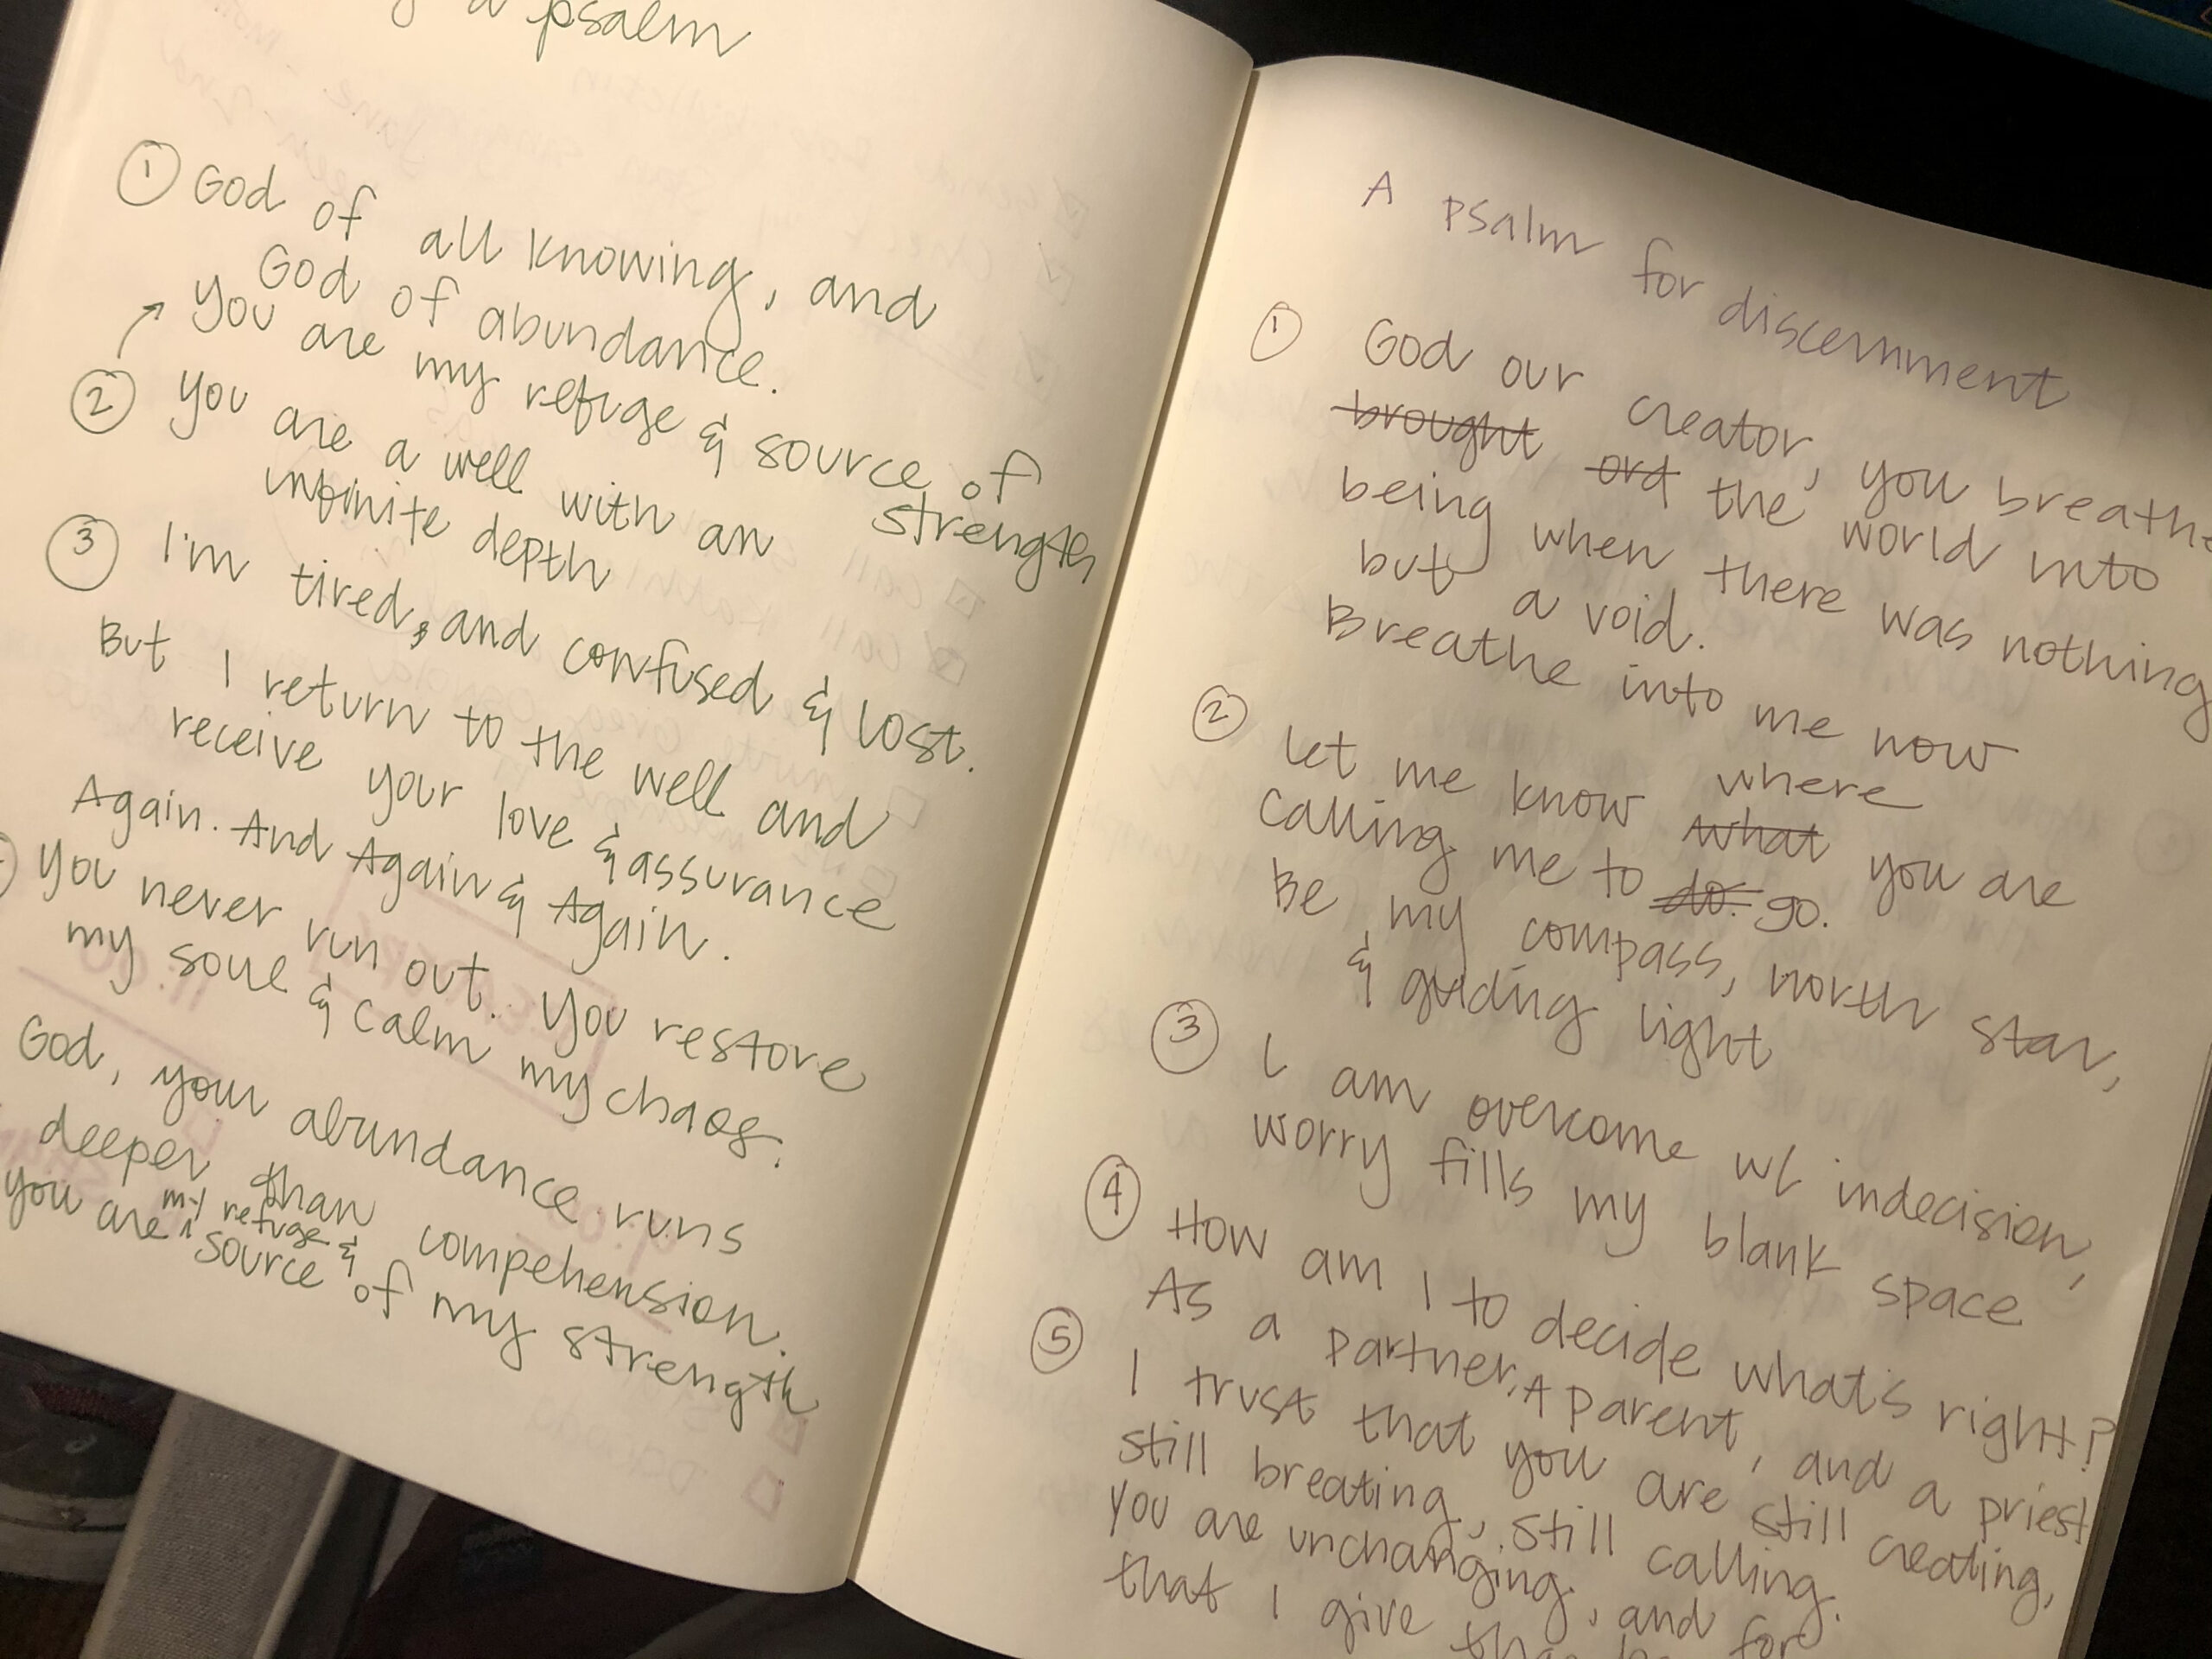 a psalm
① God of all knowing, and
God of abundance.
You are my refuge & source of
strength
② You are a well with an
infinite depth
③ I'm tired, and confused & lost.
But I return to the well and
receive your love & assurance
Again. And Again & Again.
You never run out. You restore
my soul & calm my chaos.
God, your abundance runs
deeper than compehension.
my refuge &
you are ^ source of my strength
A psalm for discernment
① God our creator, you breathe
brought ord the world into
being when there was nothing
but a void.
Breathe into me now
② where
Let me know what you are
calling me to do. go.
Be my compass, north star,
& guiding light
③ I am overcome w/ indecision,
worry fills my blank space
④ How am I to decide what's right?
As a partner, A parent, and a priest
⑤ I trust that you are still creating,
still breating, still calling.
You are unchanging, and for
that I give